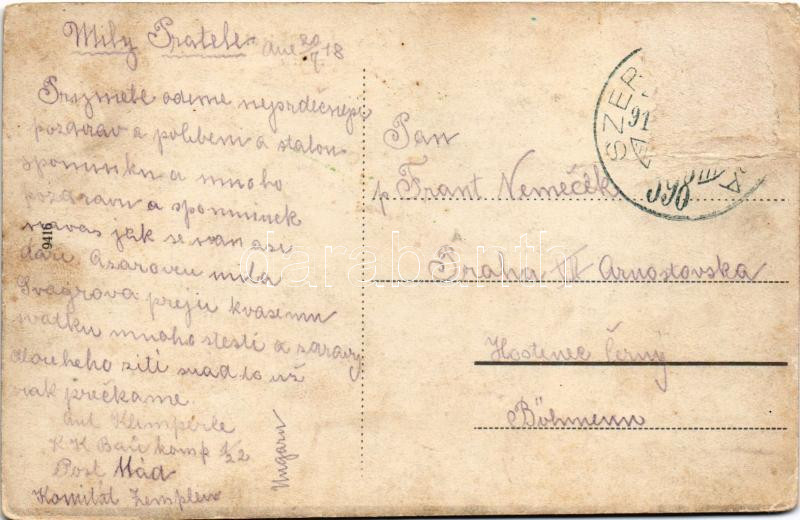 Mily Pratele dne 20/7 18
Przmete odeme nejsrdečnejsi
pozdrav a polibeni a stalou
spominku a mnoho
pozdravu a spominek
navas jak se vam asi
dari a zarovcu mila
Svagrova preju kvasemu
svatku mnoho stesti a zdravy
dlouheho ziti snad to už
nak prečkame.
Ant Klimperle
K K Bau komp 1/22
Post Mád
Komitát Zemplen
Ungarn
9416
Pan
p Frant Nemeček
Praha III Arnostovska
Hostinec Černý
Böhmenn
SZER
91
darabanth